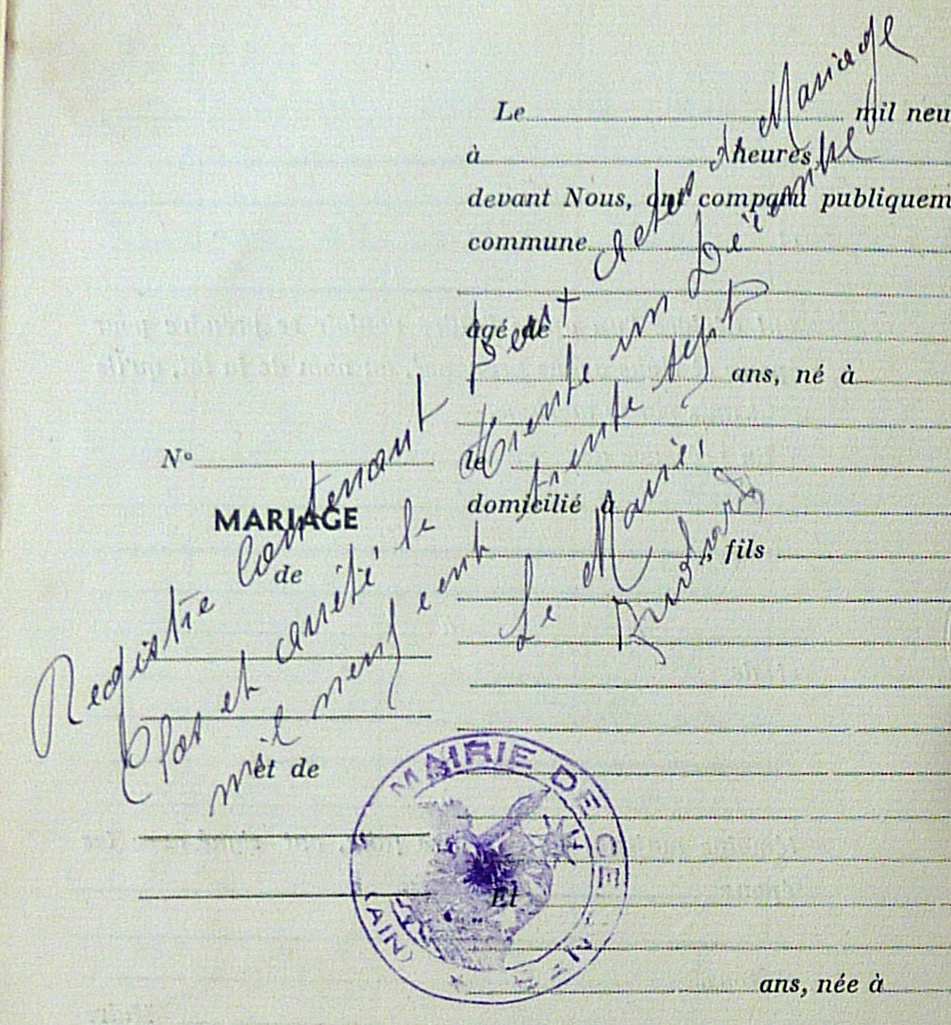 Le mil neu
à heures,
devant Nous, ont comparu publiquem
commune
âgé de
ans, né à
le
domicilié à
, fils
N°
MARIAGE
de
et de
Et
ans, née à
Registre contenant Actes de Mariage
Clos et arrêté le trente un Décembre
mil neuf cent trente sept
Le Maire,
MAIRIE DE
(AIN)